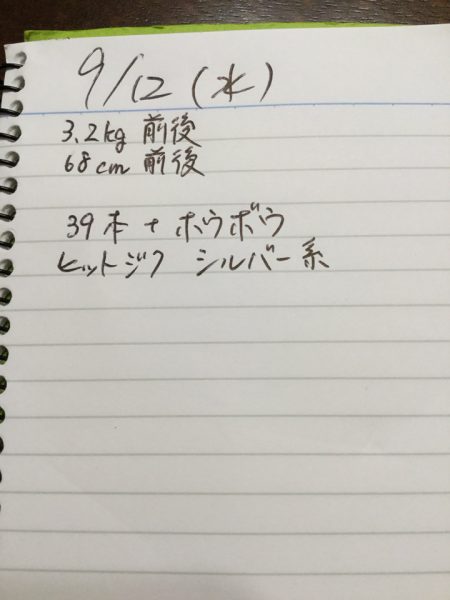 9/12(水)
3.2kg 前後
68cm 前後
39本 + ホウボウ
ヒットジグ シルバー系